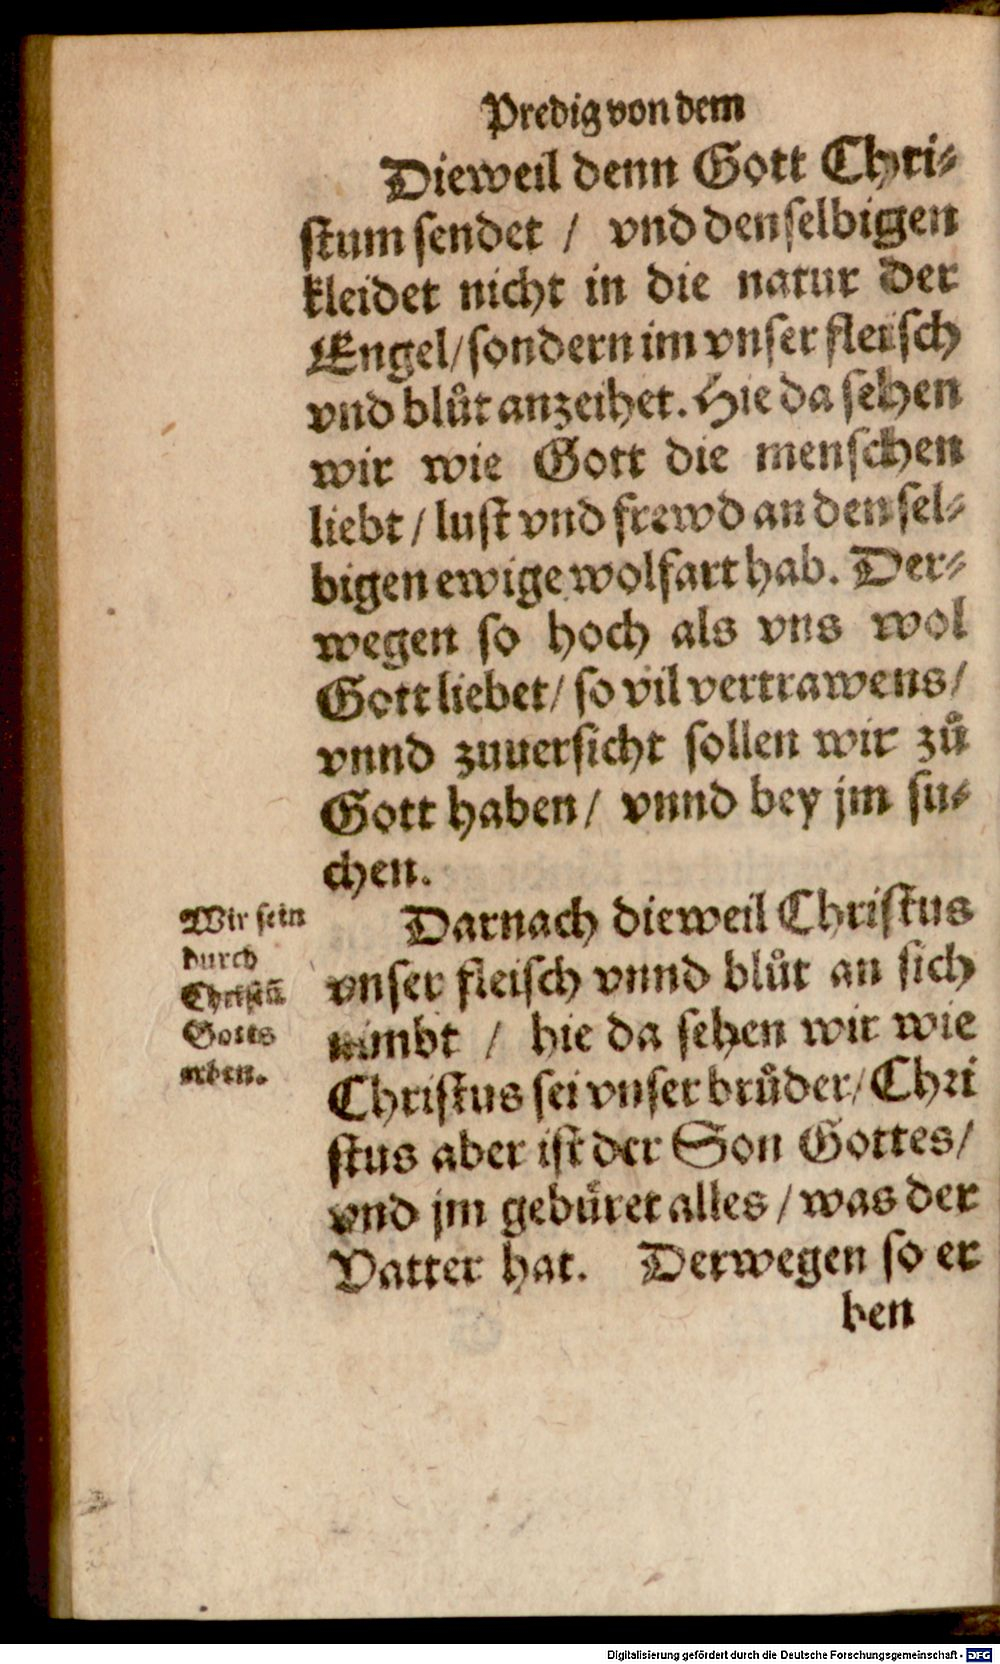 Predig von dem
Dieweil denn Gott Chri-
stum sendet / vnd denselbigen
kleidet nicht in die natur der
Engel / sondern im vnser fleisch
vnd blůt anzeihet. Hie da sehen
wir wie Gott die menschen
liebt / lust vnd frewd an densel-
bigen ewige wolfart hab. Der-
wegen so hoch als vns wol
Gott liebet / so vil vertrawens /
vnnd zuuersicht sollen wir zů
Gott haben / vnnd bey jm su-
chen.
Wir sein
durch
Christū
Gotts
erben.
Darnach dieweil Christus
vnser fleisch vnnd blůt an sich
nimbt / hie da sehen wir wie
Christus sei vnser brůder / Chri
stus aber ist der Son Gottes /
vnd jm gebüret alles / was der
Vatter hat. Derwegen so er
ben
Digitalisierung gefördert durch die Deutsche Forschungsgemeinschaft - DFG